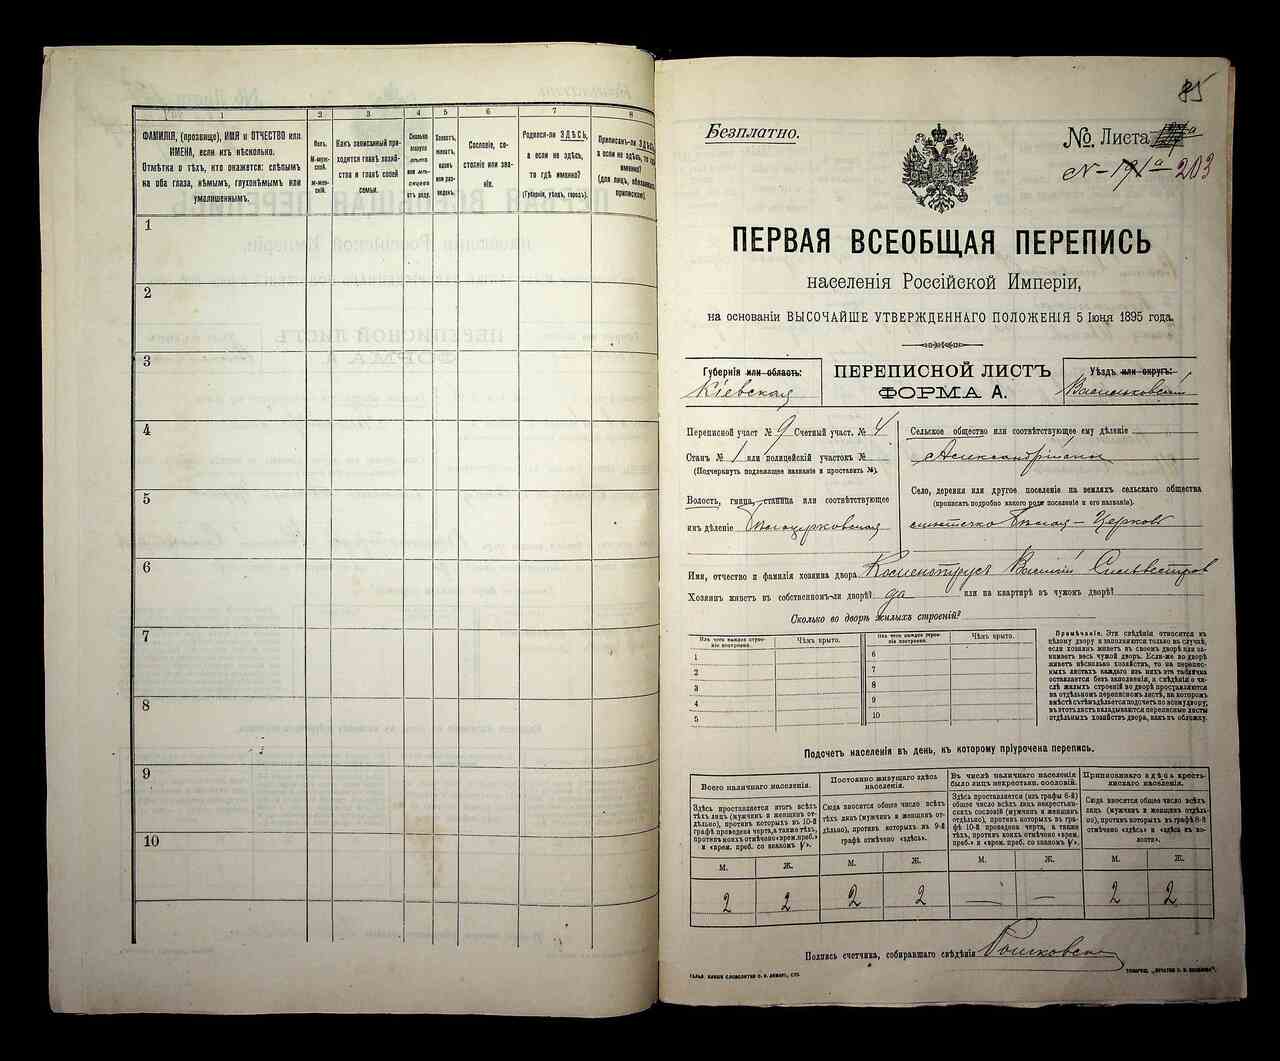 1
2
3
4
5
6
7
8
ФАМИЛІЯ, (прозвище), ИМЯ и ОТЧЕСТВО или
ИМЕНА, если ихъ нѣсколько.
Отмѣтка о тѣхъ, кто окажется: слѣпымъ
на оба глаза, нѣмымъ, глухонѣмымъ или
умалишеннымъ.
Полъ.
М-муж-
ской.
Ж-жен-
скій.
Какъ записанный при-
ходится главѣ хозяй-
ства и главѣ своей
семьи.
Сколько
минуло
лѣтъ
или мѣ-
сяцевъ
отъ роду.
Холостъ,
женатъ,
вдовъ
или раз-
веденъ.
Сословіе, со-
стояніе или зва-
ніе.
Родился-ли ЗДѢСЬ,
а если не здѣсь,
то гдѣ именно?
(Губернія, уѣздъ, городъ).
Приписанъ-ли ЗДѢСЬ,
а если не здѣсь, то гдѣ
именно?
(для лицъ, обязанныхъ
припискою).
1
2
3
4
5
6
7
8
9
10
85
Безплатно.
№ Листа
N - 191а - 203
ПЕРВАЯ ВСЕОБЩАЯ ПЕРЕПИСЬ
населенія Россійской Имперіи,
на основаніи ВЫСОЧАЙШЕ УТВЕРЖДЕННАГО ПОЛОЖЕНІЯ 5 Іюня 1895 года.
Губернія или область:
Кіевская
ПЕРЕПИСНОЙ ЛИСТЪ
ФОРМА А.
Уѣздъ или округъ:
Васильковскій
Переписной участ № 9 Счетный участ. № 4
Станъ № 1 или полицейскій участокъ №
(Подчеркнуть подлежащее названіе и проставить №).
Волость, гмина, станица или соотвѣтствующее
имъ дѣленіе Бѣлоцерковская
Сельское общество или соотвѣтствующее ему дѣленіе
Александрійское
Село, деревня или другое поселеніе на земляхъ сельскаго общества
(прописать подробно какого рода поселеніе и его названіе).
мѣстечко Бѣлая-Церковь
Имя, отчество и фамилія хозяина двора Василій Сильвестров
Хозяинъ живетъ въ собственномъ-ли дворѣ? да или на квартирѣ въ чужомъ дворѣ?
Сколько во дворѣ жилыхъ строеній?
Изъ чего каждое строе-
ніе построено.
Чѣмъ крыто.
1
2
3
4
5
Изъ чего каждое строе-
ніе построено.
Чѣмъ крыто.
6
7
8
9
10
Примѣчаніе. Эти свѣдѣнія относятся къ
цѣлому двору и заполняются только въ случаѣ,
если хозяинъ живетъ въ своемъ дворѣ или за-
нимаетъ весь чужой дворъ. Если-же во дворѣ
живетъ нѣсколько хозяйствъ, то на перепис-
ныхъ листахъ каждаго изъ нихъ эта табличка
оставляется безъ заполненія, а свѣдѣнія о чи-
слѣ жилыхъ строеній во дворѣ проставляются
на отдѣльномъ переписномъ листѣ, на которомъ
вмѣстѣ съ тѣмъ дѣлается подсчетъ по всему двору;
въ этотъ листъ вкладываются переписные листы
отдѣльныхъ хозяйствъ двора, какъ въ обложку.
Подсчетъ населенія въ день, къ которому пріурочена перепись.
Всего наличнаго населенія.
Здѣсь проставляется итогъ всѣхъ
тѣхъ лицъ (мужчинъ и женщинъ от-
дѣльно), противъ которыхъ въ 10-й
графѣ проведена черта, а также тѣхъ,
противъ коихъ отмѣчено «врем. преб.»
и «врем. преб. со знакомъ V».
Постоянно живущаго здѣсь
населенія.
Сюда вносится общее число всѣхъ
тѣхъ лицъ (мужчинъ и женщинъ от-
дѣльно), противъ которыхъ въ 9-й
графѣ отмѣчено «здѣсь».
Въ числѣ наличнаго населенія
было лицъ некрестьян. сословій.
Здѣсь проставляется (изъ графы 6-й)
общее число всѣхъ лицъ некрестьян-
скихъ сословій (мужчинъ и женщинъ
отдѣльно), противъ которыхъ въ гра-
фѣ 10-й проведена черта, а также
тѣхъ, противъ коихъ отмѣчено «врем.
преб.» и «врем. преб. со знакомъ V».
Приписаннаго здѣсь кресть-
янскаго населенія.
Сюда вносится общее число всѣхъ
лицъ (мужчинъ и женщинъ отдѣль-
но), противъ которыхъ въ графѣ 8-й
отмѣчено «здѣсь» и «здѣсь въ во-
лости».
М. Ж. М. Ж. М. Ж. М. Ж.
2 2 2 2 — — 2 2
Подпись счетчика, собиравшаго свѣдѣнія